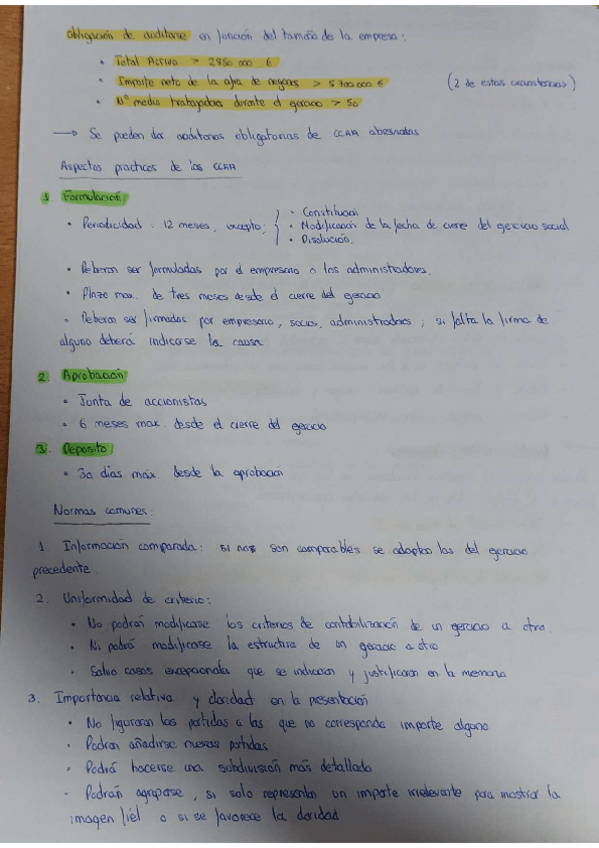 obligación de auditarse en función del tamaño de la empresa:
• Total Activo > 2850 000 €
• Importe neto de la cifra de negocios > 5 700 000 € (2 de estas circunstancias)
• Nº medio trabajadores durante el ejercicio > 50
→ Se pueden dar auditorias obligatorias de CCAA abreviadas
Aspectos practicos de las CCAA
1. Formulación
• Periodicidad: 12 meses, excepto:
• Constitución
• Modificación de la fecha de cierre del ejercicio social
• Disolución.
• Deberan ser formuladas por el empresario o los administradores.
• Plazo max. de tres meses desde el cierre del ejercicio
• Deberan ser firmadas por empresario, socios, administradores; si falta la firma de
alguno deberá indicarse la causa
2. Aprobación
• Junta de accionistas
• 6 meses max. desde el cierre del ejercicio
3. Deposito
• 30 días máx. desde la aprobación
Normas comunes:
1. Información comparada: si nos son comparables se adaptan las del ejercicio
precedente.
2. Uniformidad de criterio:
• No podrán modificarse los criterios de contabilización de un ejercicio a otro.
• Ni podrá modificarse la estructura de un ejercicio a otro
• Salvo casos excepcionales que se indicaran y justificaran en la memoria
3. Importancia relativa y claridad en la presentación
• No figuraran las partidas a las que no corresponda importe alguno
• Podran añadirse nuevas partidas
• Podrá hacerse una subdivisión más detallada
• Podrán agruparse, si solo representan un importe irrelevante para mostrar la
imagen fiel o si se favorece la claridad